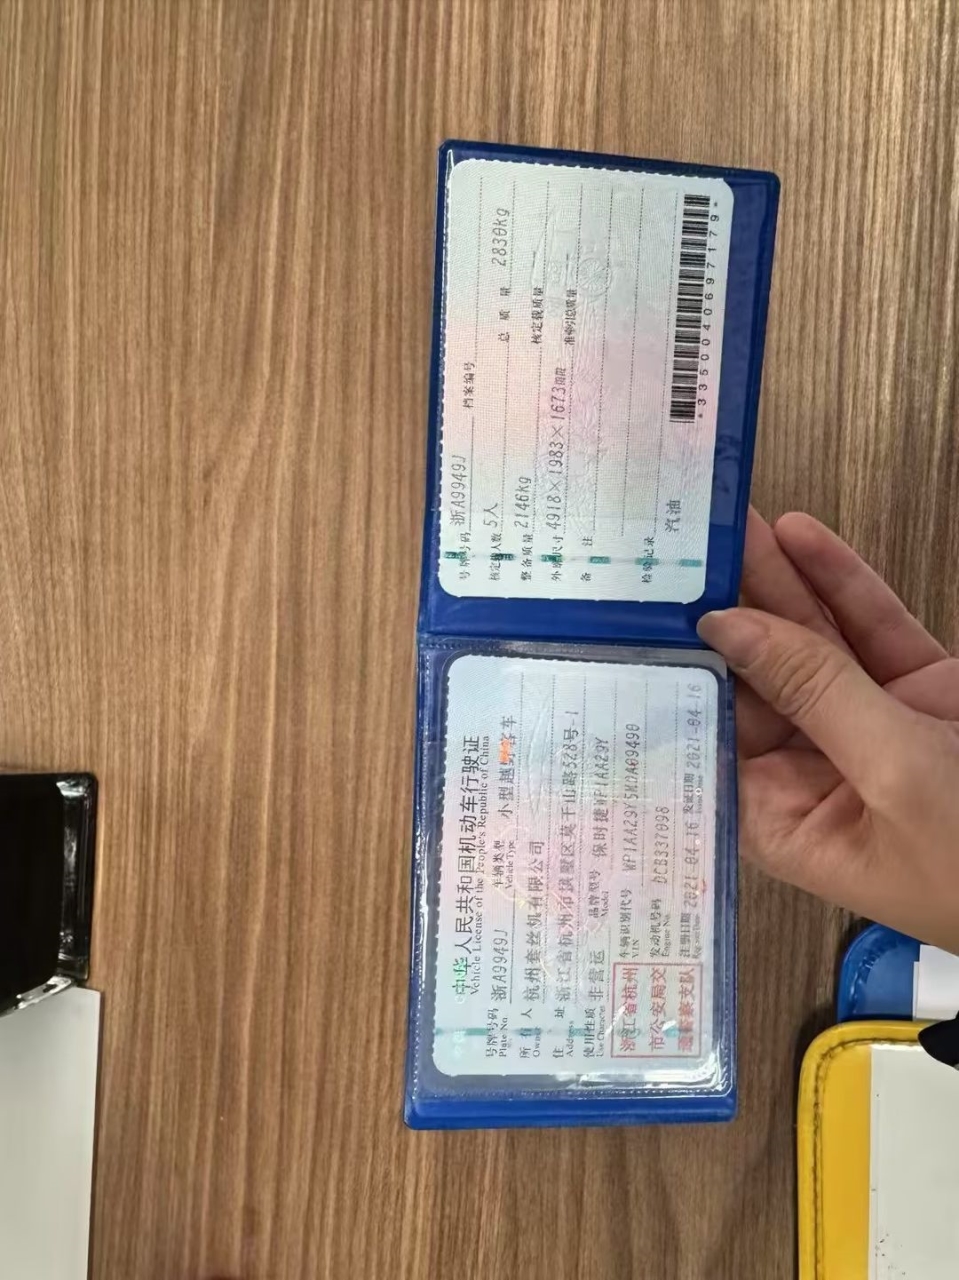 中华人民共和国机动车行驶证
Vehicle License of the People's Republic of China
号牌号码 浙A9949J 车辆类型 小型越野客车
Plate No. Vehicle Type
所有人 杭州套丝机有限公司
Owner
住址 浙江省杭州市拱墅区莫干山路528号-1
Address
使用性质 非营运 品牌型号 保时捷WP1AA29Y
Use Character Model
浙江省杭州
市公安局交
通警察支队
车辆识别代号 WP1AA29Y5MDA09490
VIN
发动机号码 DCB337098
Engine No.
注册日期 2021-04-16 发证日期 2021-04-16
Register Date Issue Date
号牌号码 浙A9949J 档案编号
核定载人数 5人 总质量 2830kg
整备质量 2146kg 核定载质量
外廓尺寸 4918×1983×1673mm 准牵引总质量
备注
检验记录
汽油
*3350040697179*